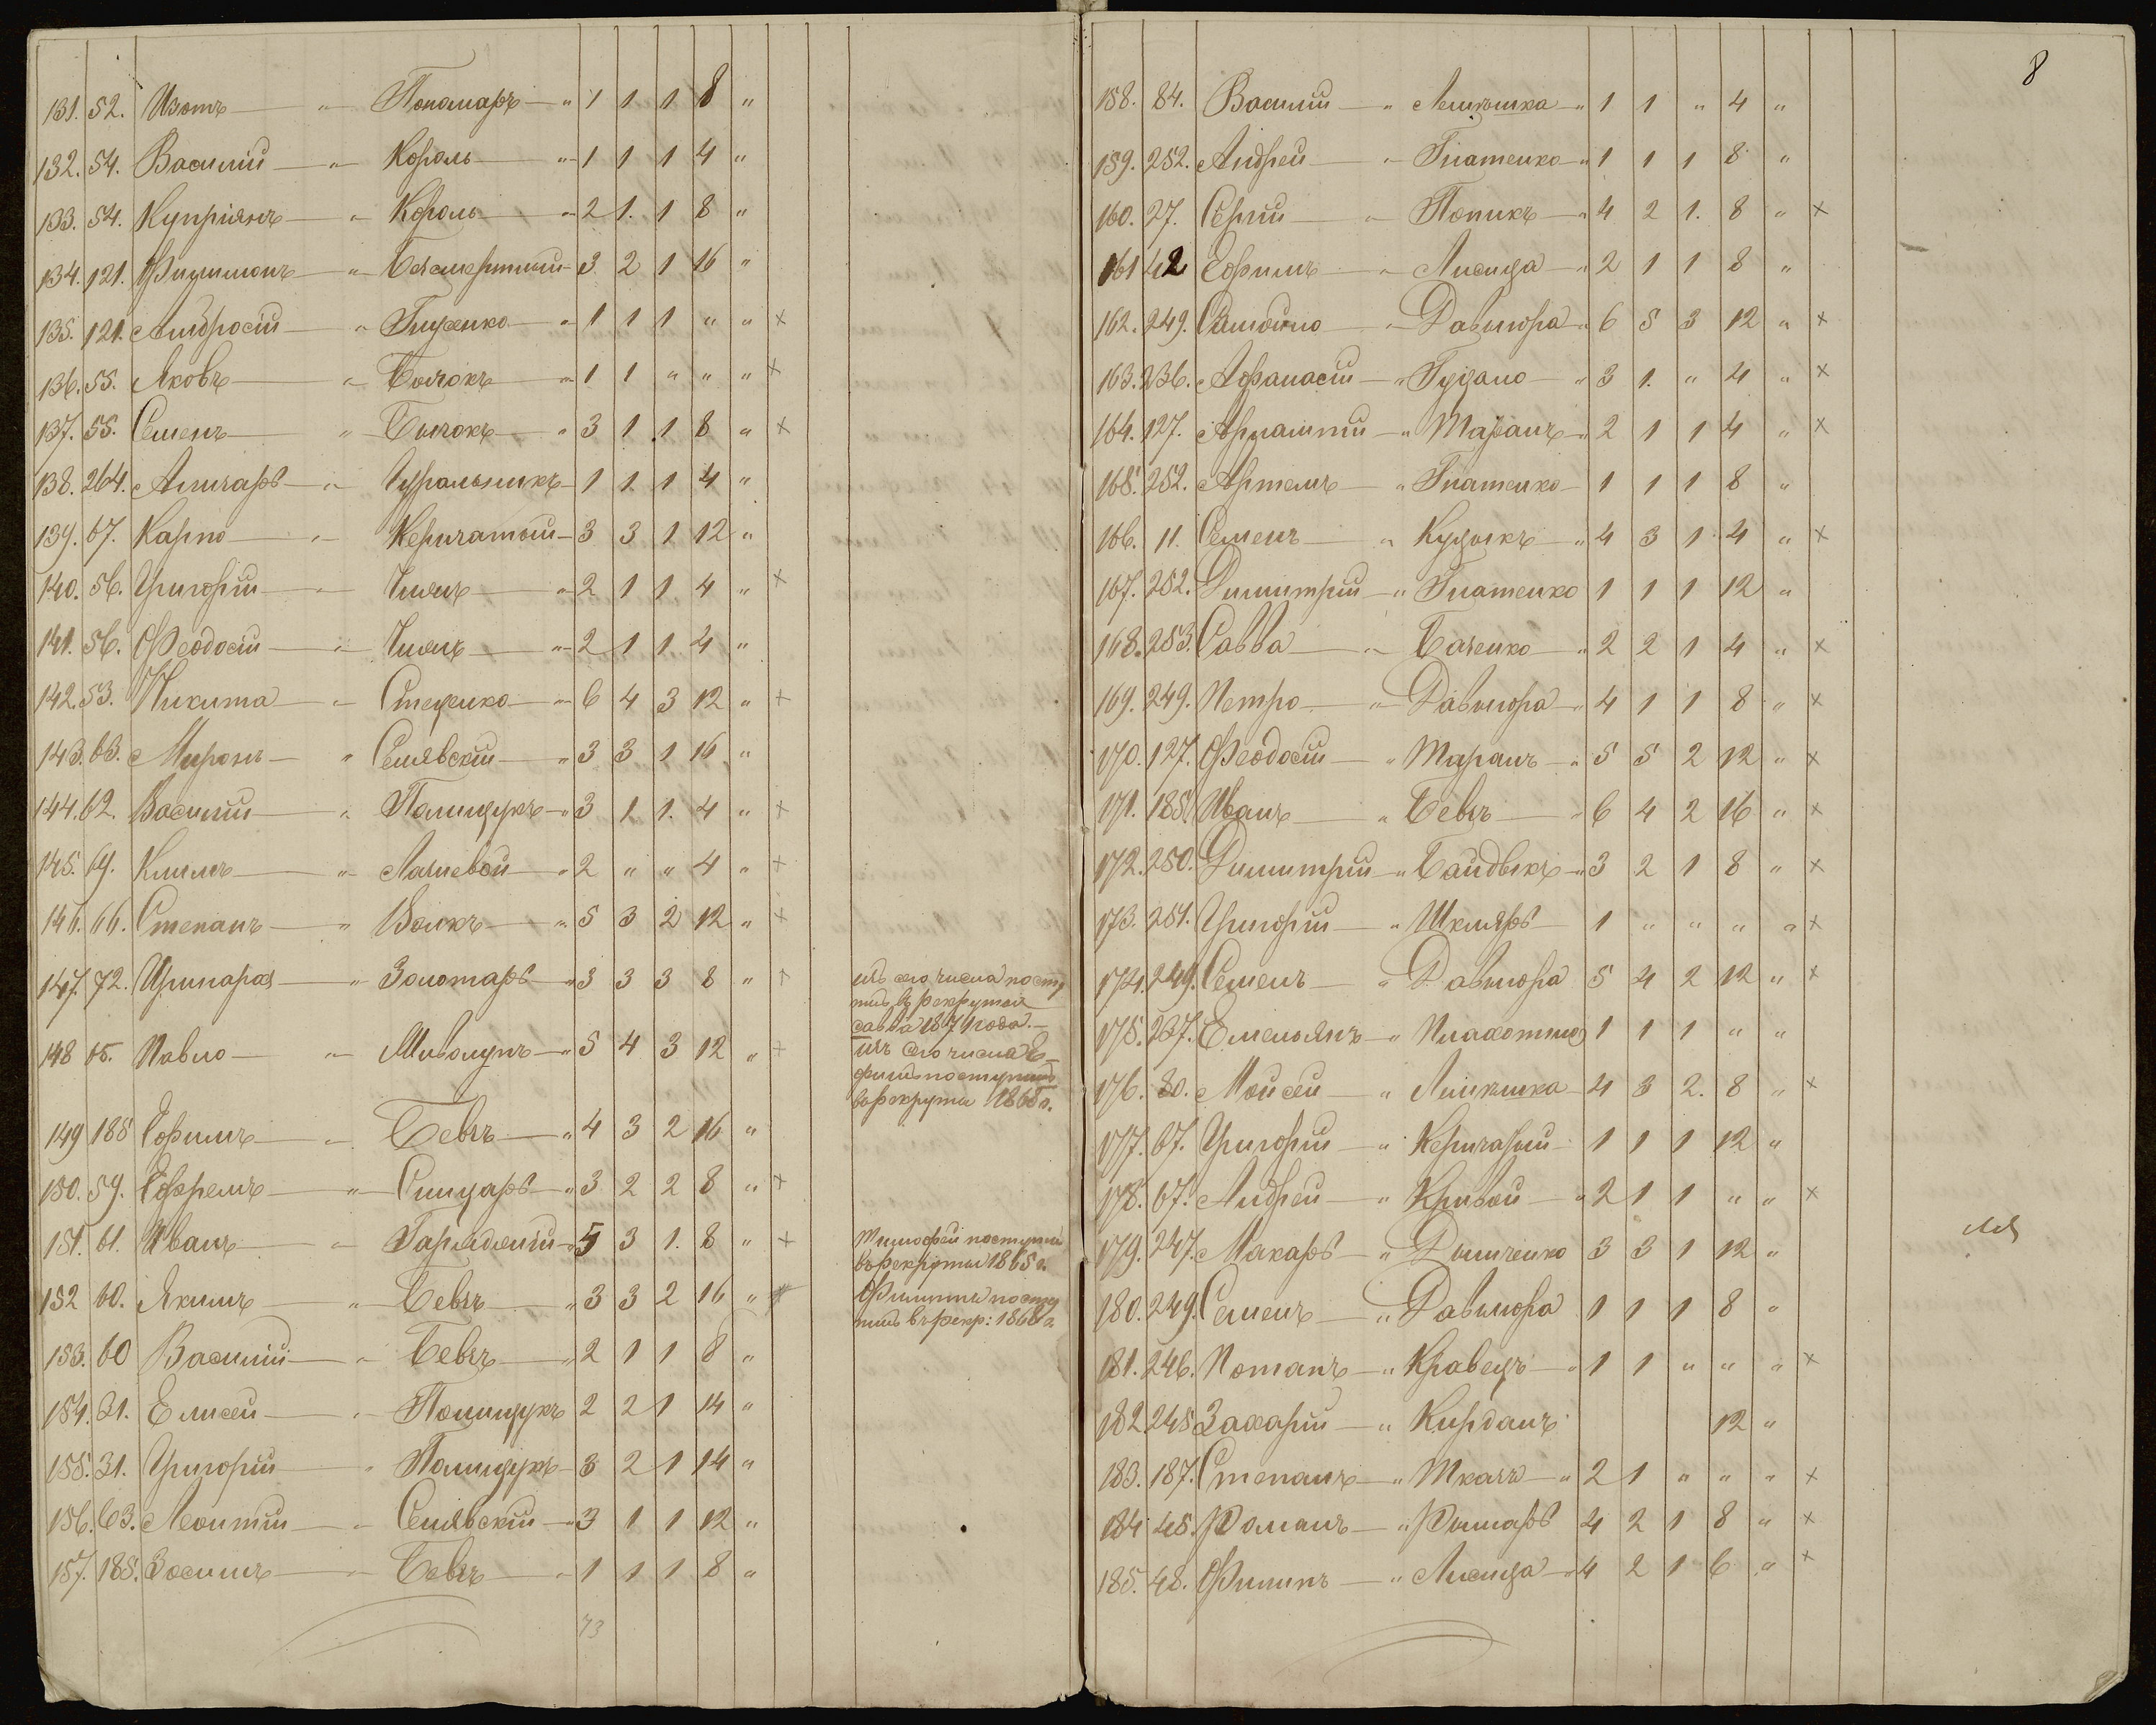 131. 52. Изотъ — " — Пономаръ — " 1 1 1 8 "
132. 54. Василий — " — Король — " 1 1 1 4 "
133. 54. Куприянъ — " — Король — " 2 1. 1 8 "
134. 121. Филимонъ — " — Безсмертный — 3 2 1 16 "
135. 121. Амбросій — " — Гнуценко — " 1 1 1 " " ×
136. 55. Яковъ — " — Бычокъ — " 1 1 " " " ×
137. 55. Семенъ — " — Бычокъ — " 3 1 1 8 " ×
138. 264. — " — 1 1 1 4 "
139. 67. Карпо — " — Кергатый — 3 3 1 12 "
140. 56. Григорій — " — " 2 1 1 4 " ×
141. 56. Феодосій — " — " 2 1 1 4 "
142. 53. Никита — " — Стеценко — " 6 4 3 12 " ×
143. 63. Миронъ — " Синявскій — " 3 3 1 16 "
144. 62. Василий — " Полищукъ — " 3 1 1. 4 " ×
145. 69. Климъ — " — Лозневой — " 2 " " 4 " ×
146. 66. Степанъ — " Волкъ — " 5 3 2 12 " ×
147. 72. — " Золотаръ — " 3 3 3 8 " × изъ сего числа посту
пилъ въ рекруты
Савва 1871 года. —
148 65. Павло — " — Миволупъ — " 5 4 3 12 " × изъ сего числа Е-
фимъ поступилъ
въ рекруты 1865 г.
149 185 Ефимъ — " — Бевзъ — " 4 3 2 16 "
150. 59. Ефремъ — " — Слицаръ — " 3 2 2 8 " ×
151. 61. Иванъ — " — 5 3 1. 8 " × Тимофей поступилъ
въ рекруты 1865 г.
152 60. Якимъ — " — Бевзъ — " 3 3 2 16 " × Филиппъ посту
пилъ въ рекр: 1868 г.
153. 60 Василий — " — Бевзъ — " 2 1 1 8 "
154. 31. Елисей — " — Полищукъ 2 2 1 14 "
155. 31. Григорій — " Полищукъ — 3 2 1 14 "
156. 63. Леонтій — " Синявскій — " 3 1 1 12 "
157. 185. Зосимъ — " Бевзъ — " 1 1 1 8 "
73
8
158. 84. Василий — " — 1 1 " 4 "
159. 252. Андрей — " — Гнатенко — " 1 1 1 8 "
160. 27. Сергій — " — Попикъ — " 4 2 1. 8 " ×
161 42 Ефимъ — " — Лисица — " 2 1 1 8 "
162. 249. Самойло — " — Давыдюра — " 6 5 3 12 " ×
163. 236. Афанасій — " Гуцало — " 3 1. " 4 " ×
164. 127. — " Таранъ — " 2 1 1 4 " ×
165. 252. Артемъ — " Гнатенко — 1 1 1 8 "
166. 11. Семенъ — " Куцыкъ — " 4 3 1 4 " ×
167. 252. Димитрій — " Гнатенко 1 1 1 12 "
168. 253. Савва — " — Баченко — " 2 2 1 4 " ×
169. 249. Петро — " — Давыдюра — " 4 1 1 8 " ×
170. 127. Феодосій — " Таранъ — " 5 5 2 12 " ×
171. 185. Иванъ — " Бевзъ — " 6 4 2 16 " ×
172. 250. Димитрій — " Байдыкъ — " 3 2 1 8 " ×
173. 251. Григорій — " Шкляръ — 1 " " " " ×
174. 249. Семенъ — " Давыдюра 5 4 2 12 " ×
175. 237. Емельянъ — " Плахотнюк 1 1 1 " "
176. 80. Мойсей — " 4 3 2. 8 " ×
177. 67. Григорій — " Кергатый — 1 1 1 12 "
178. 67. Андрей — " Кривой — " 2 1 1 " " ×
179. 247. Макаръ — " Дымченко 3 3 1 12 "
180. 249. Семенъ — " Давыдюра 1 1 1 8 "
181. 246. Потапъ — " Кравецъ — " 1 1 " " " ×
182. 245 Захарій — " Кирданъ 12 "
183. 187. Степанъ — " Ткачъ — " 2 1 " " " ×
184 45. Романъ — " Рымаръ 4 2 1 8 " ×
185. 48. Филипъ — " Лисица — " 4 2 1 6 " ×